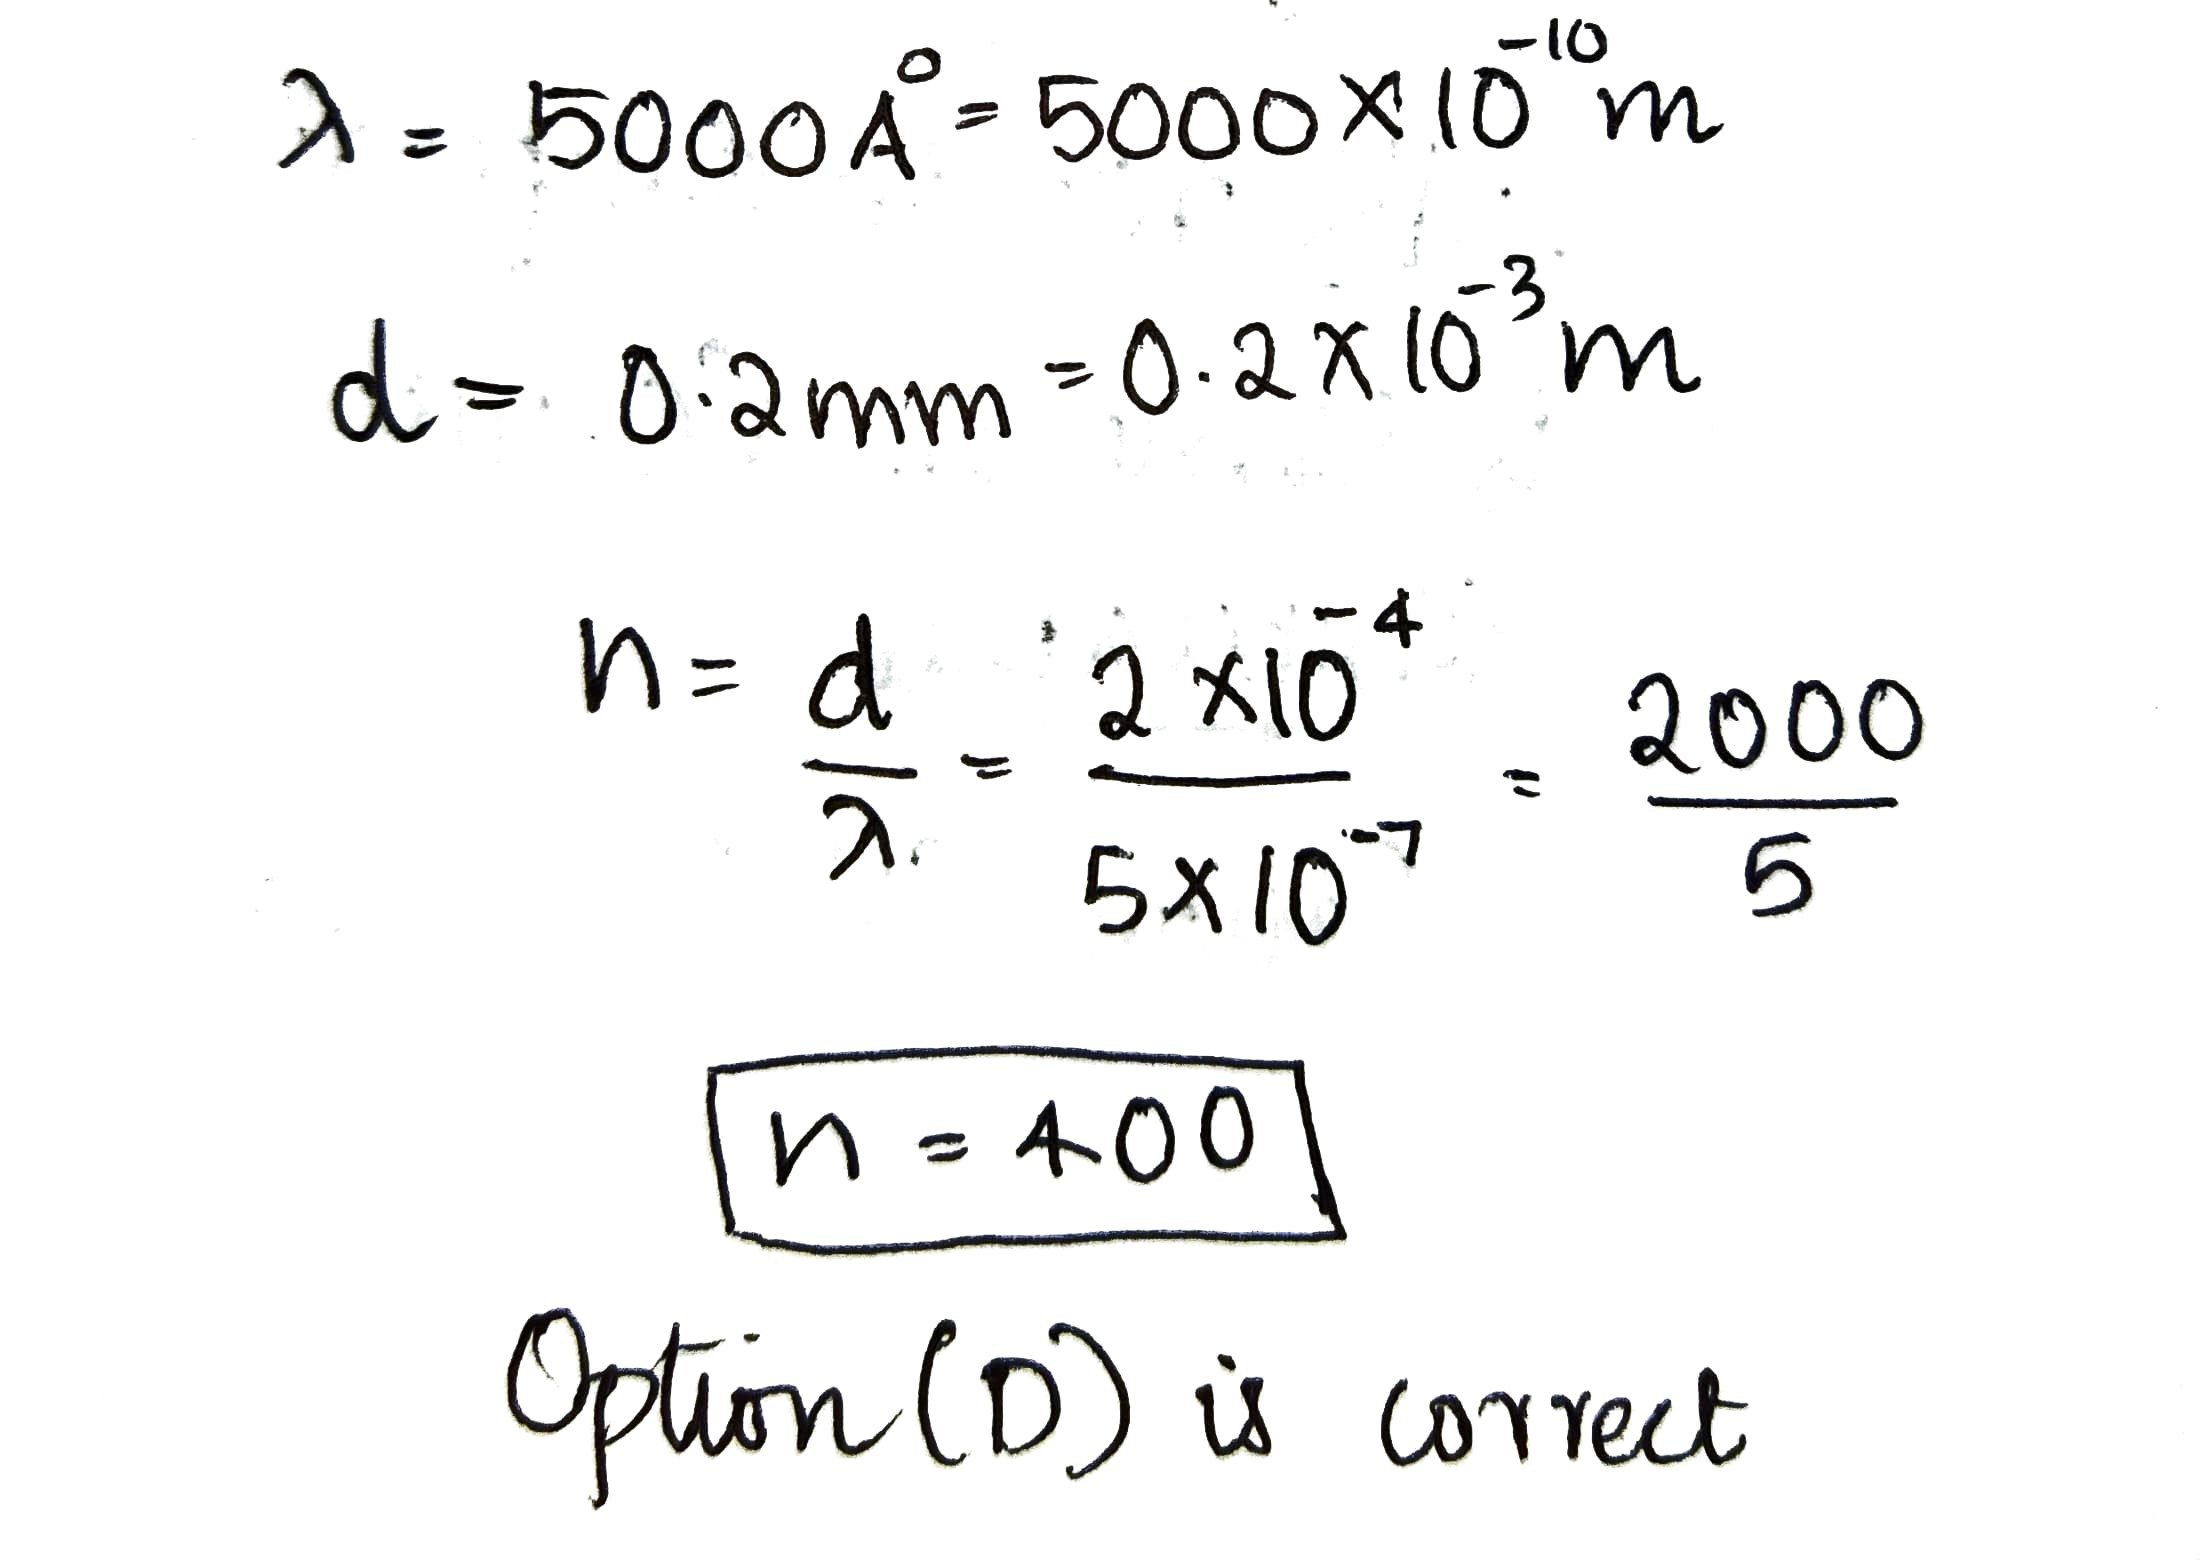 λ = 5000 A° = 5000 × 10⁻¹⁰ m
d = 0.2mm = 0.2 × 10⁻³ m
n = d/λ = 2 × 10⁻⁴ / 5 × 10⁻⁷ = 2000/5
n = 400
Option (D) is correct